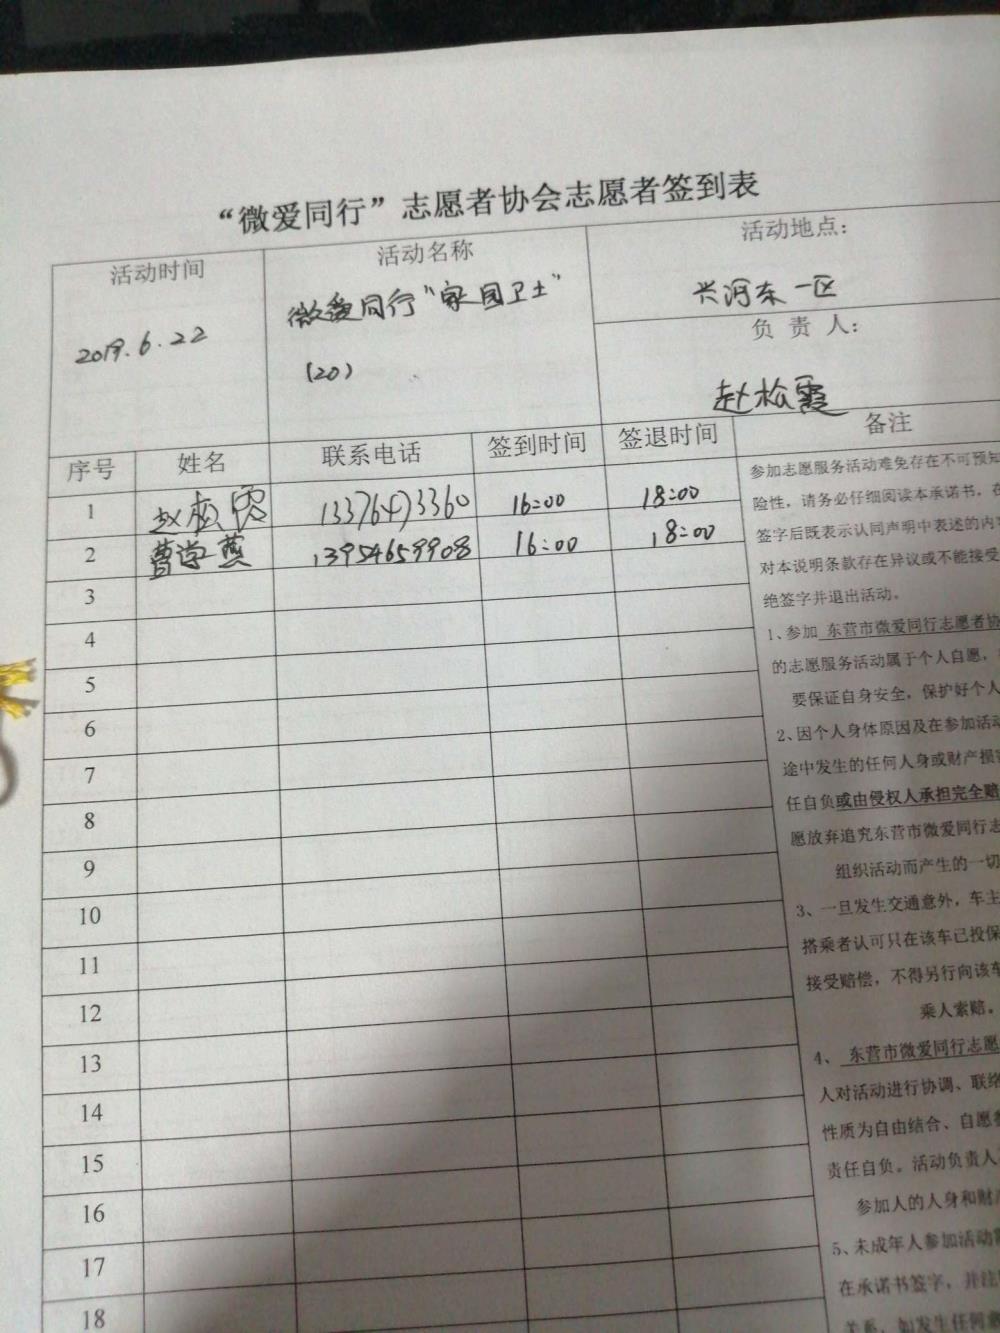 “微爱同行”志愿者协会志愿者签到表
活动时间
2019.6.22
活动名称
微爱同行“家园卫士”
(20)
活动地点：
兴河东一区
负 责 人：
赵松霞
序号 姓名 联系电话 签到时间 签退时间 备注
1 赵松霞 16:00 18:00
2 曹学燕 13954659908 16:00 18:00
3
4
5
6
7
8
9
10
11
12
13
14
15
16
17
18
参加志愿服务活动难免存在不可预知
险性，请务必仔细阅读本承诺书，在
签字后既表示认同声明中表述的内容
对本说明条款存在异议或不能接受
绝签字并退出活动。
1、参加 东营市微爱同行志愿者协
的志愿服务活动属于个人自愿，
要保证自身安全，保护好个人
2、因个人身体原因及在参加活动
途中发生的任何人身或财产损害
任自负或由侵权人承担完全赔
愿放弃追究东营市微爱同行志
组织活动而产生的一切
3、一旦发生交通意外，车主
搭乘者认可只在该车已投保
接受赔偿，不得另行向该车
乘人索赔。
4、 东营市微爱同行志愿
人对活动进行协调、联络
性质为自由结合、自愿参
责任自负。活动负责人
参加人的人身和财产
5、未成年人参加活动
在承诺书签字，并注
关系，如发生任何意